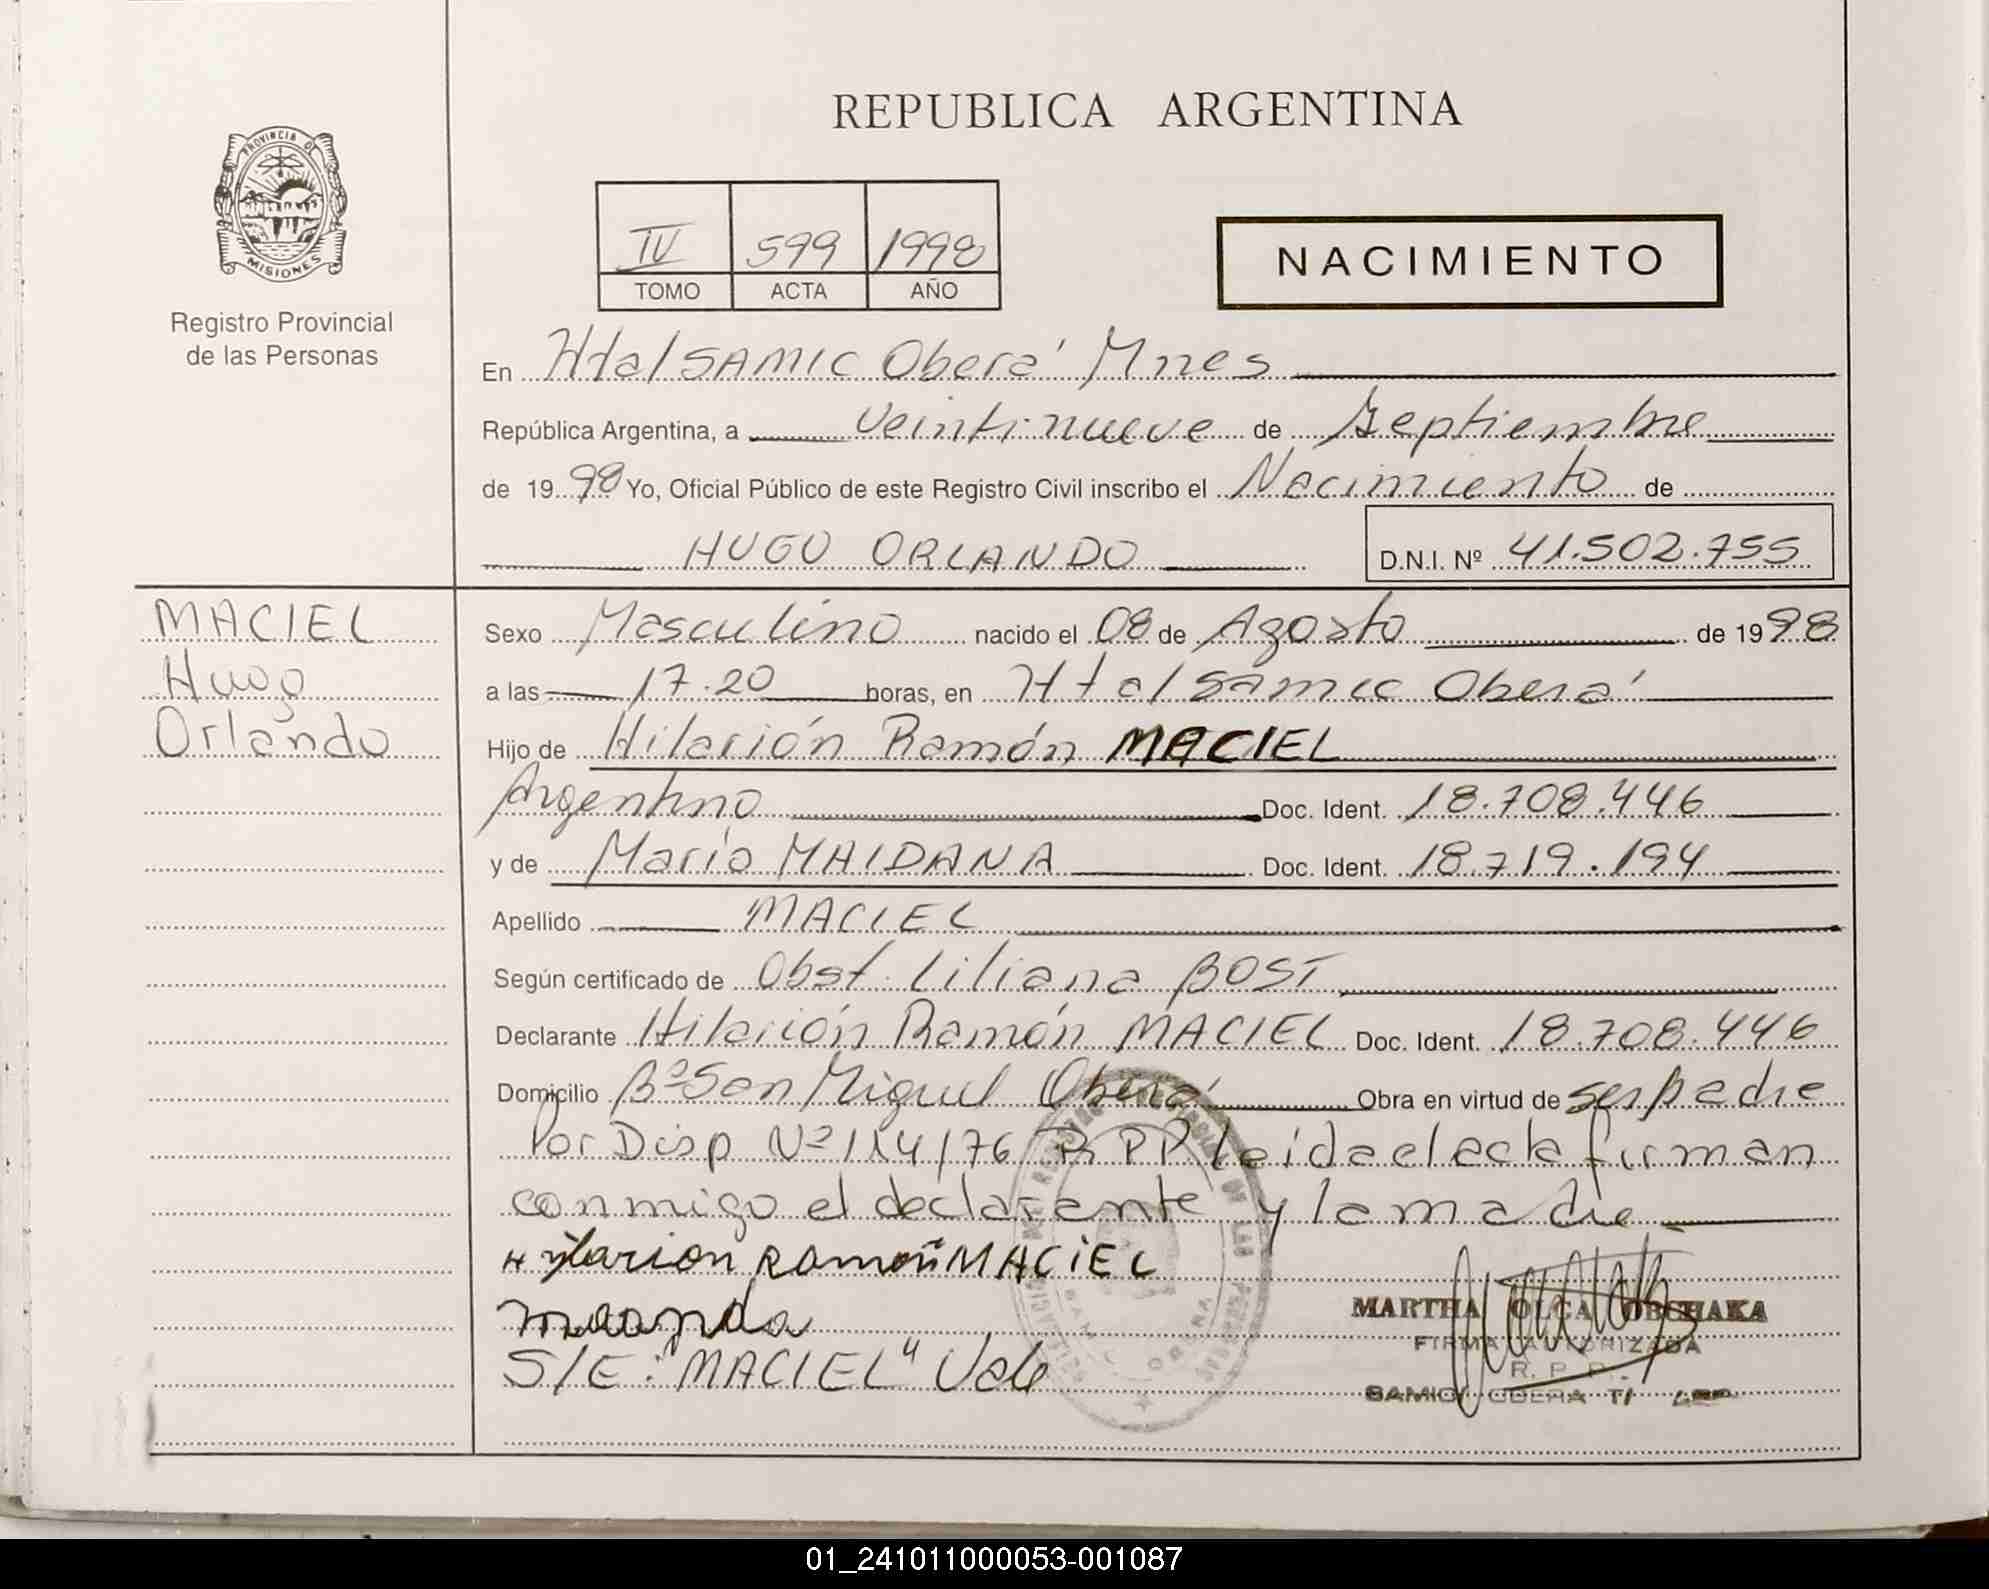 REPUBLICA ARGENTINA
PROVINCIA DE
MISIONES
Registro Provincial
de las Personas
IV 599 1998
TOMO ACTA AÑO
NACIMIENTO
En Htal SAMIC Oberá Mnes
República Argentina, a veintinueve de Septiembre
de 1998 Yo, Oficial Público de este Registro Civil inscribo el Nacimiento de
HUGO ORLANDO D.N.I. Nº 41.502.755
MACIEL
Hugo
Orlando
Sexo Masculino nacido el 08 de Agosto de 1998
a las 17.20 horas, en Htal Samic Oberá
Hijo de Hilarión Ramón MACIEL
Argentino Doc. Ident. 18.708.446
y de María MAIDANA Doc. Ident. 18.719.194
Apellido MACIEL
Según certificado de Obst. Liliana BOST
Declarante Hilarión Ramón MACIEL Doc. Ident. 18.708.446
Domicilio Bº San Miguel Oberá Obra en virtud de ser padre
Por Disp Nº 114/76 R P P leida el acta firman
conmigo el declarante y la madre
Hylarion Ramon MACIEL
S/E: "MACIEL" Vale
MARTHA OLGA
FIRMA AUTORIZADA
R. P. P.
SAMIC OBERA
01_241011000053-001087